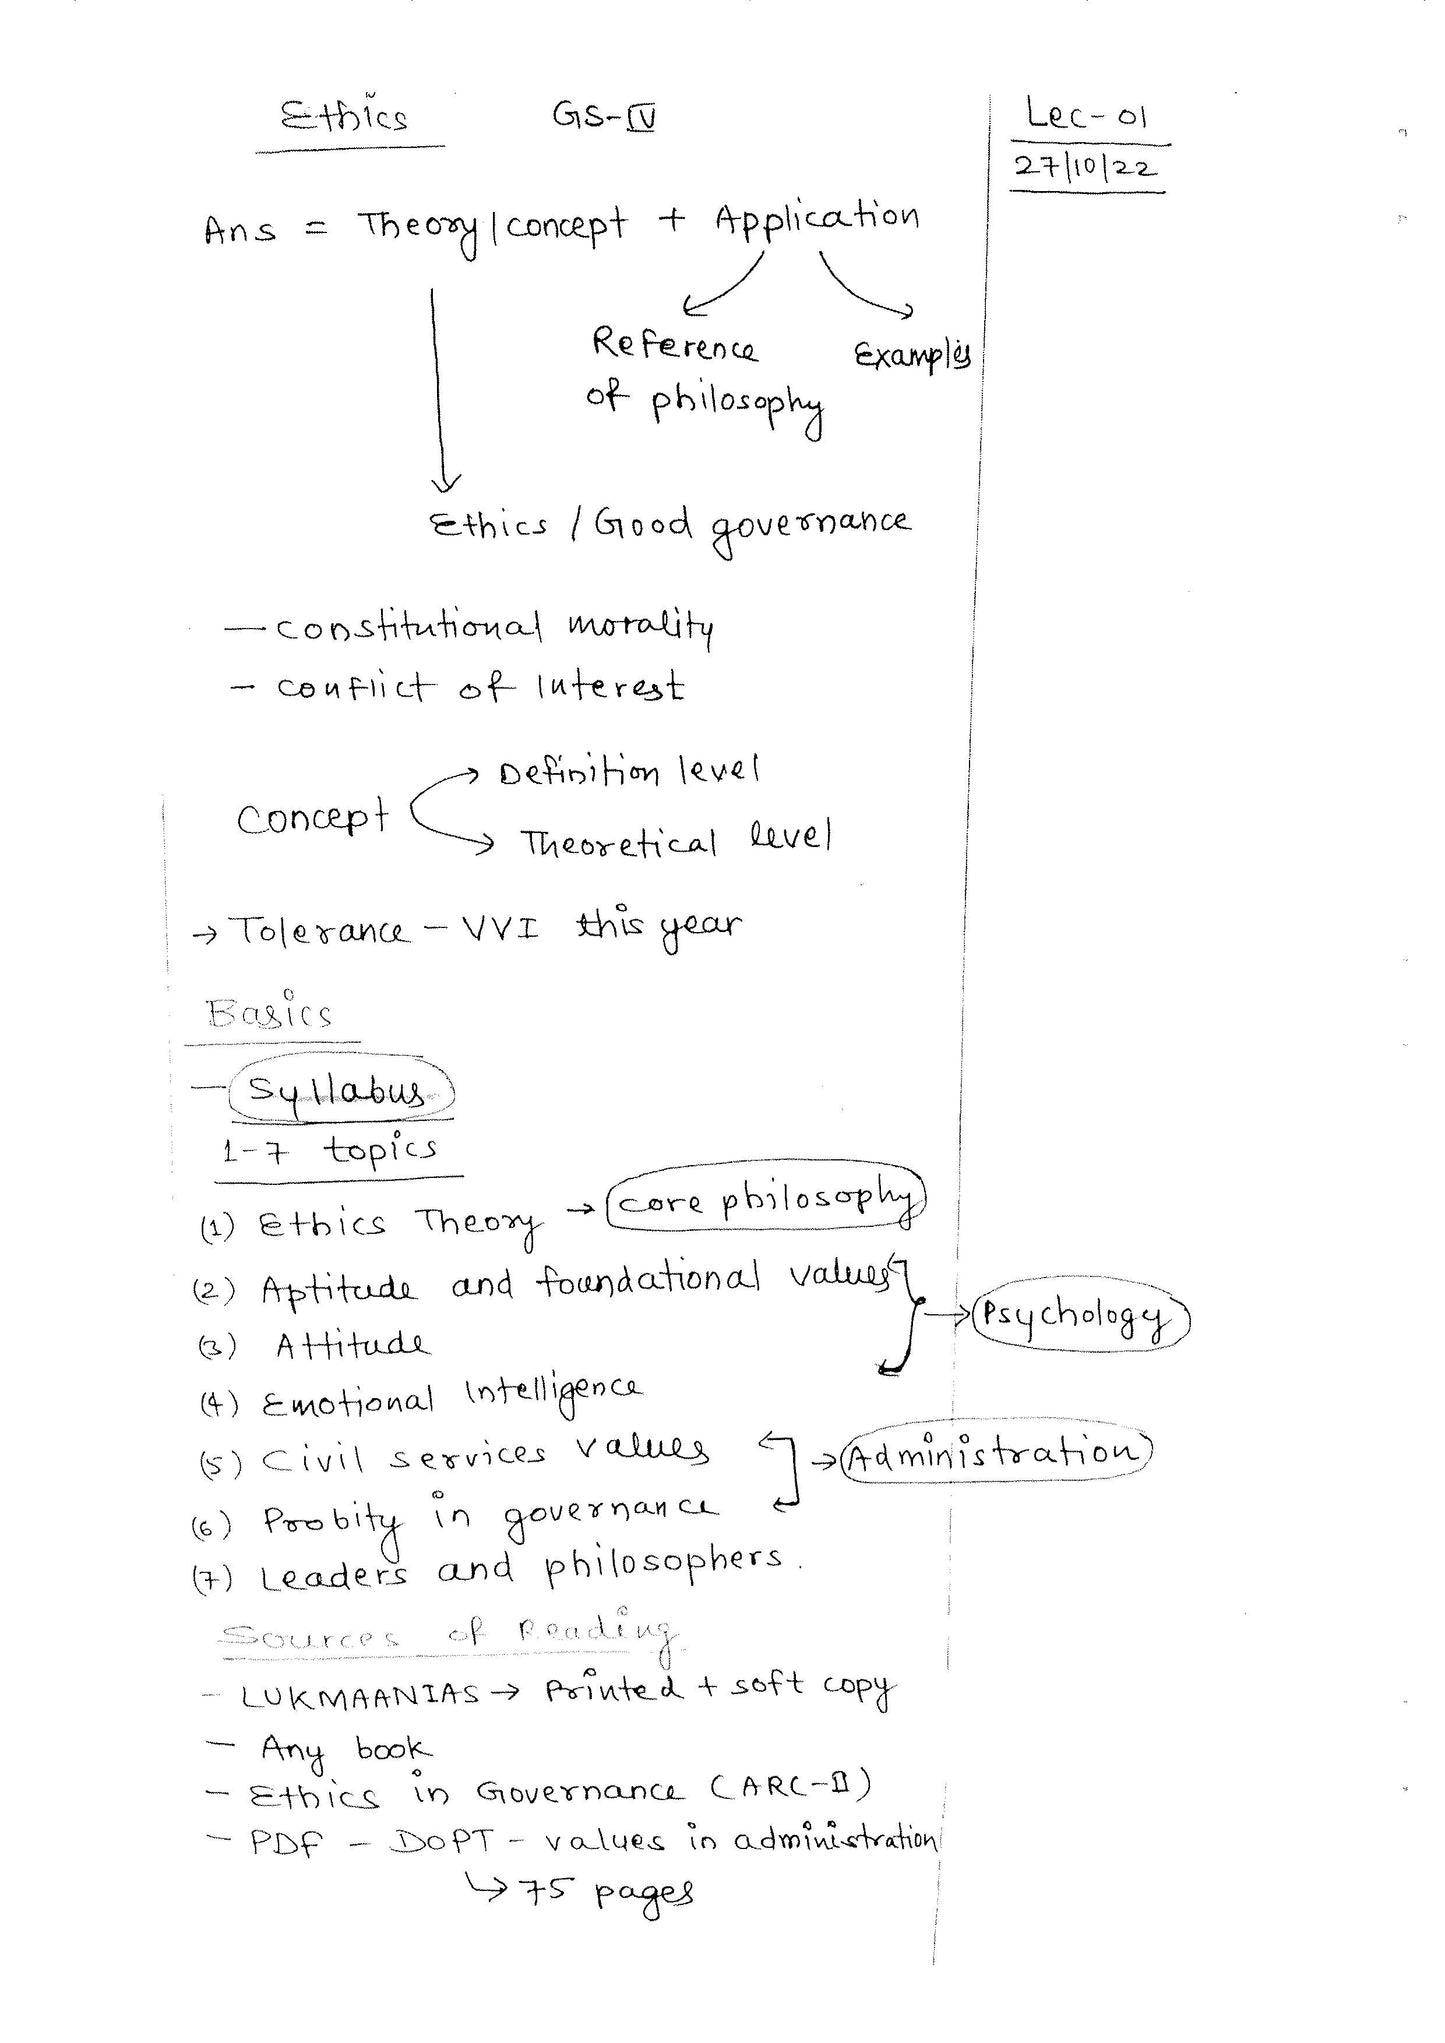 Ethics GS-IV Lec-01
27/10/22
Ans = Theory/concept + Application
Reference of philosophy
Examples
Ethics / Good governance
— constitutional morality
- conflict of Interest
Concept
→ Definition level
→ Theoretical level
→ Tolerance - VVI this year
Basics
— Syllabus
1-7 topics
(1) Ethics Theory → core philosophy
(2) Aptitude and foundational values
(3) Attitude
→ Psychology
(4) Emotional Intelligence
(5) Civil services values
→ Administration
(6) Probity in governance
(7) Leaders and philosophers.
Sources of Reading
- LUKMAANIAS → Printed + soft copy
- Any book
- Ethics in Governance (ARC-II)
- PDF - DOPT - values in administration
↳ 75 pages